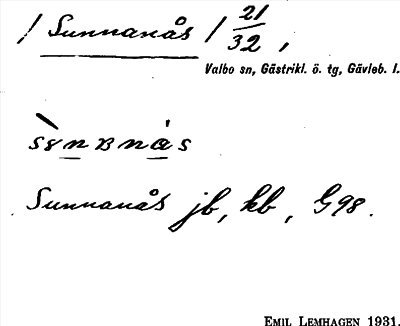 / Sunnanås / 21/32,
Valbo sn, Gästrikl. ö. tg, Gävleb. l.
Sunnanås jb, kb, G98.
EMIL LEMHAGEN 1931.